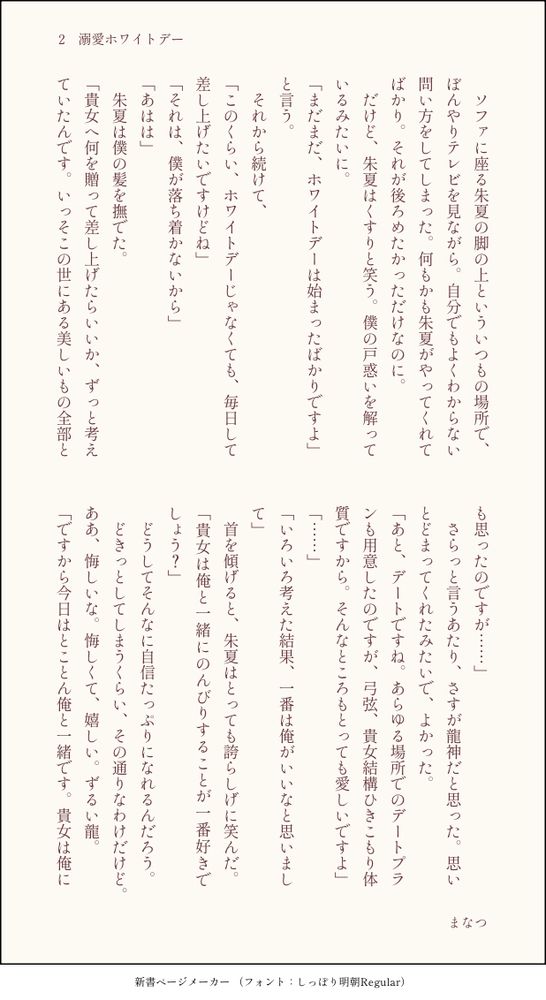 2 溺愛ホワイトデー
ソファに座る朱夏の脚の上といういつもの場所で、
ぼんやりテレビを見ながら。自分でもよくわからない
問い方をしてしまった。何もかも朱夏がやってくれて
ばかり。それが後ろめたかっただけなのに。
だけど、朱夏はくすりと笑う。僕の戸惑いを解って
いるみたいに。
「まだまだ、ホワイトデーは始まったばかりですよ」
と言う。
それから続けて、
「このくらい、ホワイトデーじゃなくても、毎日して
差し上げたいですけどね」
「それは、僕が落ち着かないから」
「あはは」
朱夏は僕の髪を撫でた。
「貴女へ何を贈って差し上げたらいいか、ずっと考え
ていたんです。いっそこの世にある美しいもの全部と
も思ったのですが……」
さらっと言うあたり、さすが龍神だと思った。思い
とどまってくれたみたいで、よかった。
「あと、デートですね。あらゆる場所でのデートプラ
ンも用意したのですが、弓弦、貴女結構ひきこもり体
質ですから。そんなところもとっても愛しいですよ」
「……」
「いろいろ考えた結果、一番は俺がいいなと思いまし
て」
首を傾げると、朱夏はとっても誇らしげに笑んだ。
「貴女は俺と一緒にのんびりすることが一番好きで
しょう？」
どうしてそんなに自信たっぷりになれるんだろう。
どきっとしてしまうくらい、その通りなわけだけど。
ああ、悔しいな。悔しくて、嬉しい。ずるい龍。
「ですから今日はとことん俺と一緒です。貴女は俺に
まなつ
新書ページメーカー （フォント：しっぽり明朝Regular）